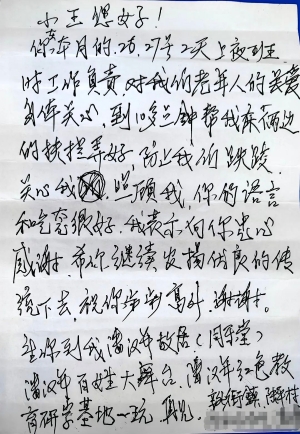 小王您好！
你本月的26.27号2天上夜班
时工作负责.对我们老年人的关爱
到位关心.到12点钟帮我床两边
的扶拦弄好.防止我们跌跤
关心我.照顾我.你的语言
和态度很好.我表示向你忠心
感谢.希你继续发扬优良的传
统下去.祝你步步高升.谢谢.
望你到我潘汉年故居(同平堂)
潘汉年百姓大舞台.潘汉年红色教
育研学基地一玩 再见.